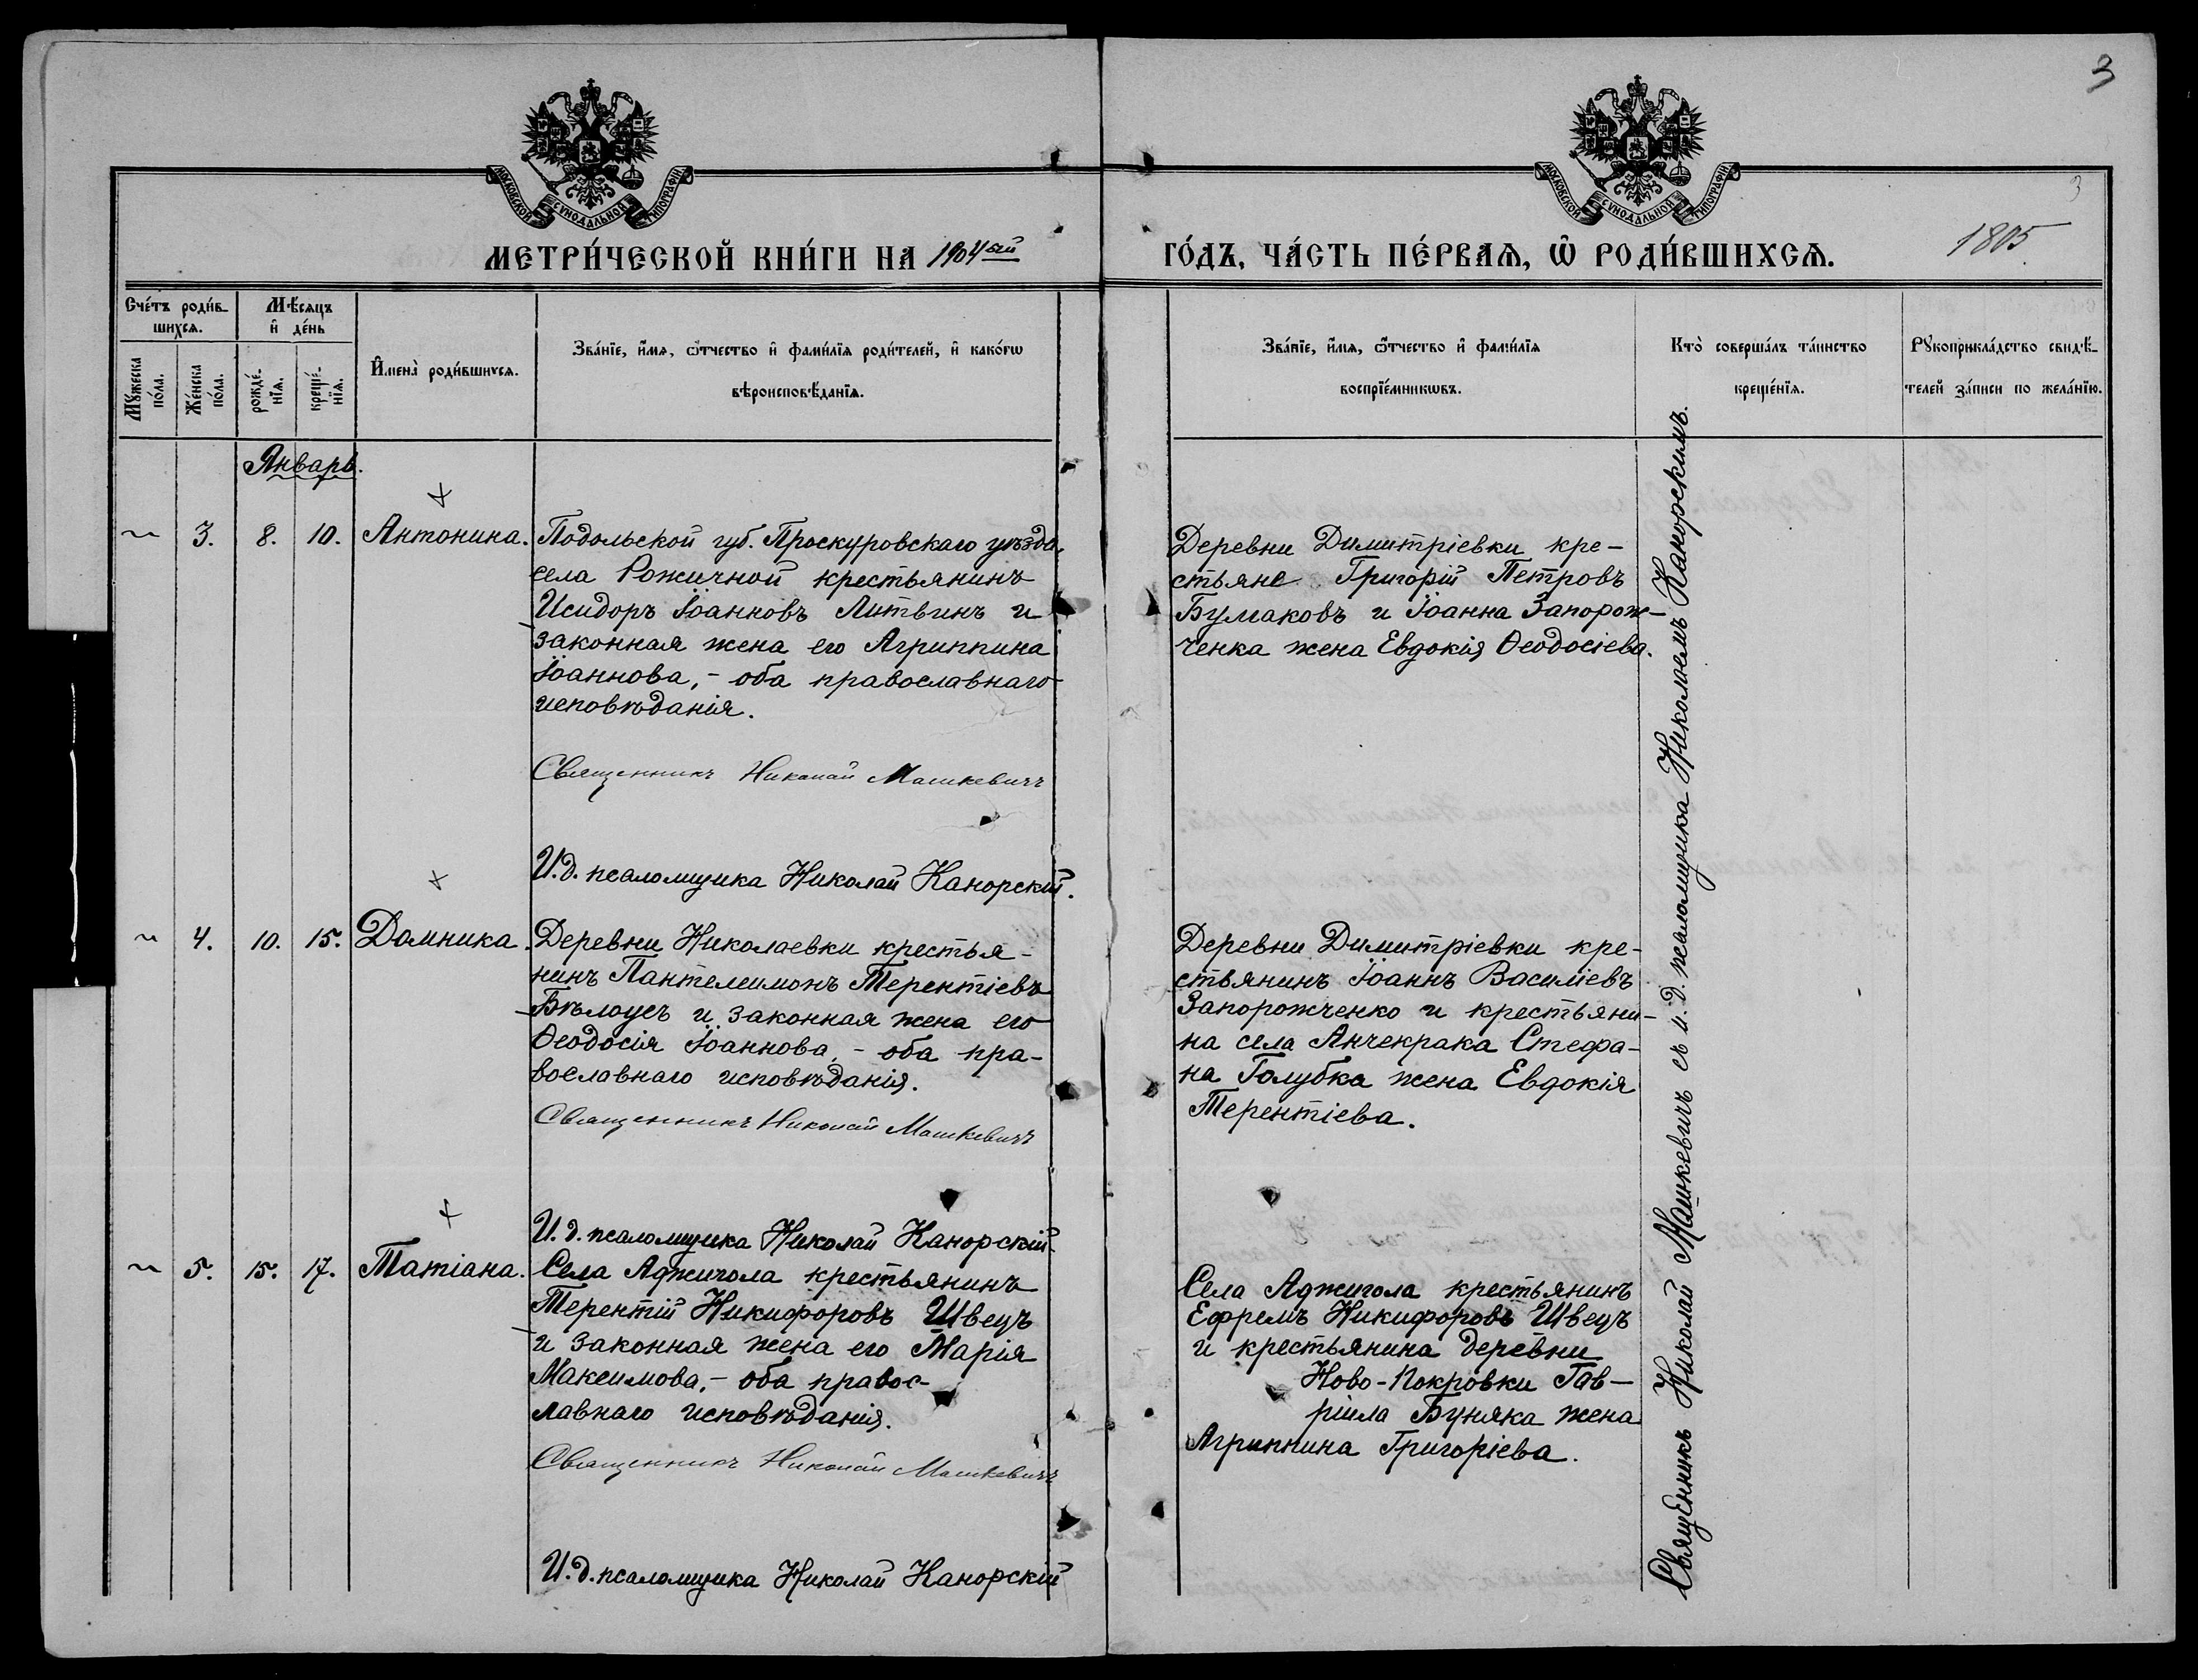 3
МОСКОВСКОЙ СѴНОДАЛЬНОЙ ТИПОГРАФІИ
МОСКОВСКОЙ СѴНОДАЛЬНОЙ ТИПОГРАФІИ
3
МЕТРИ́ЧЕСКОЙ КНИ́ГИ НА 1904ый
ГО́ДЪ, ЧА́СТЬ ПЕ́РВАѦ, Ѽ РОДИ́ВШИХСѦ.
1805
Сче́тъ роди́в-
шихсѧ.
Мѣ́сѧцъ
и҆ де́нь
Мꙋ́жеска
по́ла.
Же́нска
по́ла.
рожде́-
нїѧ.
креще́-
нїѧ.
И҆мена̀ роди́вшихсѧ.
Зва́нїе, и҆́мѧ, ѻ҆́тчество и҆ фами́лїѧ роди́телей, и҆ како́гѡ
вѣроисповѣ́данїѧ.
Зва́нїе, и҆́мѧ, ѻ҆́тчество и҆ фами́лїѧ
воспрїе́мникѡвъ.
Кто̀ соверша́лъ та́инство
креще́нїѧ.
Рꙋкоприкла́дство свидѣ́-
телей за́писи по жела́нїю.
Январь.
~ 3. 8. 10. Антонина.
Подольской губ. Проскуровскаго уѣзда,
села Рожичной крестьянинъ
Исидоръ Іоанновъ Литвинъ и
законная жена его Агриппина
Іоаннова, - оба православнаго
исповѣданія.
Священникъ Николай Машкевичъ
И.д. псаломщика Николай Канорскій.
Деревни Димитріевки кре-
стьяне Григорій Петровъ
Бумаковъ и Іоанна Запорож-
ченка жена Евдокія Ѳеодосіева.
~ 4. 10. 15. Домника.
Деревни Николаевки крестья-
нинъ Пантелеимонъ Терентіевъ
Бѣлоусъ и законная жена его
Ѳеодосія Іоаннова, - оба пра-
вославнаго исповѣданія.
Священникъ Николай Машкевичъ
И.д. псаломщика Николай Канорскій.
Деревни Димитріевки кре-
стьянинъ Іоаннъ Василіевъ
Запорожченко и крестьяни-
на села Анчекрака Стефа-
на Голубка жена Евдокія
Терентіева.
~ 5. 15. 17. Татіана.
Села Аджигола крестьянинъ
Терентій Никифоровъ Швецъ
и законная жена его Марія
Максимова, - оба правос-
лавнаго исповѣданія.
Священникъ Николай Машкевичъ
И.д. псаломщика Николай Канорскій
Села Аджигола крестьянинъ
Ефремъ Никифоровъ Швецъ
и крестьянина деревни
Ново-Покровки Гав-
ріила Буняка жена
Агриппина Григоріева.
Священникъ Николай Машкевичъ съ и.д. псаломщика Николаемъ Канорскимъ.